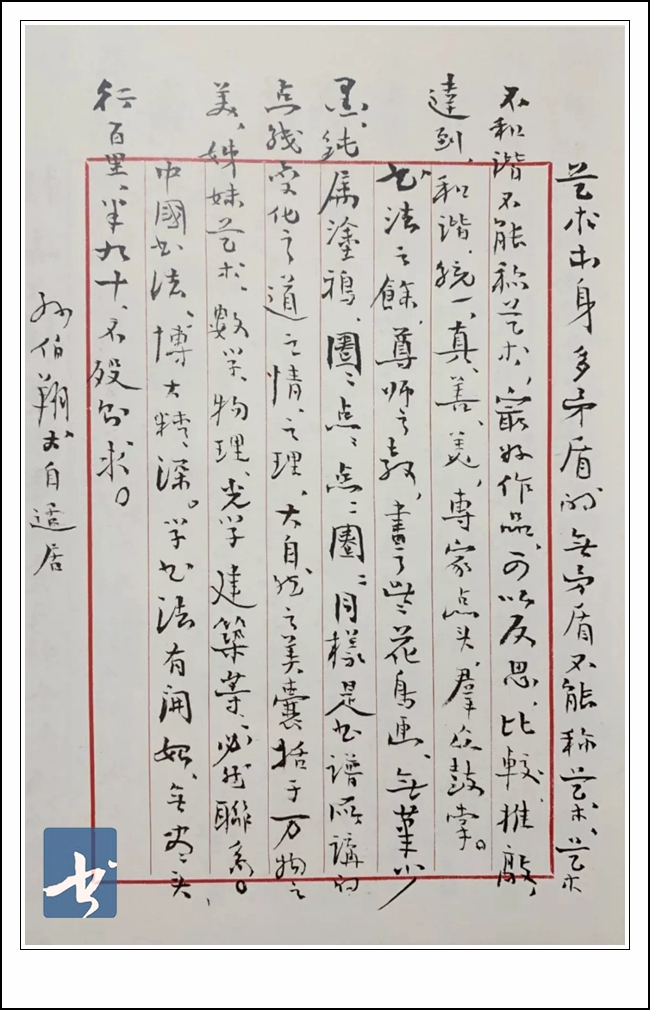 艺术本身多矛盾的無矛盾不能称艺术、艺术
不和谐不能称艺术,最好作品、可以反思、比較、推敲,
達到,和谐、统一、真、善、美,專家点头,羣众鼓掌。
书法之餘,尊师之教,畫了些花鸟画、無筆少
墨、鈍属塗鴉,圈〻点〻点〻圈〻同樣是书谱所講的
点线变化之道、之情、之理、大自然之美囊括于万物之
美、姊妹艺术、数学、物理、光学、建築等,必然聯系。
中國书法、博大精深。学书法有開始、無头,
行百里、半九十、不求。
孙伯翔书自适居
书